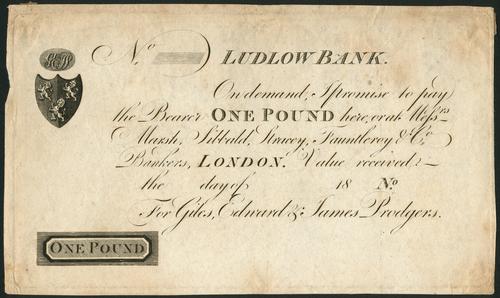 No
LUDLOW BANK.
On demand, I promise to pay
the Bearer ONE POUND here, or at Messrs
Marsh, Sibbald, Stracey, Fauntleroy & Co
Bankers, LONDON. Value received.
the day of 18 No
For Giles, Edward & James Prodgers.
ONE POUND